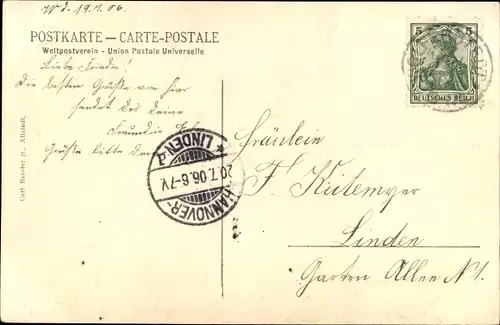 19. 06.
POSTKARTE — CARTE-POSTALE
Weltpostverein - Union Postale Universelle
Liebe Frieda!
Die besten Grüße von hier
sendet dir deine
Freundin
Grüße bitte
Carl Haseler jr., Alfstedt.
5 5
DEUTSCHES REICH
HANNOVER-
20.7.06.6-7V.
LINDEN
Fräulein
F. Kütemeyer
Linden
Garten Allee No 1.